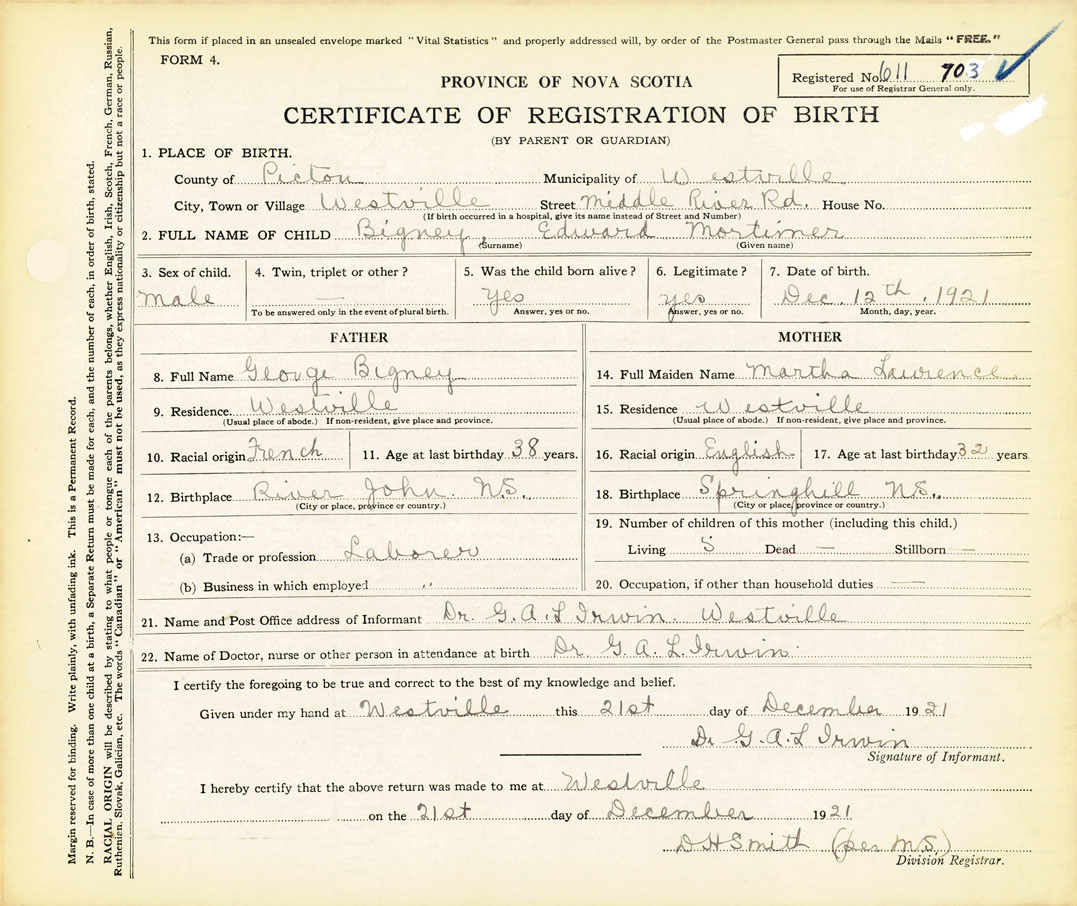 This form if placed in an unsealed envelope marked "Vital Statistics" and properly addressed will, by order of the Postmaster General pass through the Mails "FREE."
FORM 4.
Registered No. 611 703
For use of Registrar General only.
PROVINCE OF NOVA SCOTIA
CERTIFICATE OF REGISTRATION OF BIRTH
(BY PARENT OR GUARDIAN)
1. PLACE OF BIRTH.
County of Pictou Municipality of Westville
City, Town or Village Westville Street Middle River Rd. House No.
(If birth occurred in a hospital, give its name instead of Street and Number)
2. FULL NAME OF CHILD Bigney, Edward Mortimer
(Surname) (Given name)
3. Sex of child. 4. Twin, triplet or other? 5. Was the child born alive? 6. Legitimate? 7. Date of birth.
Male — Yes yes Dec. 12th, 1921
To be answered only in the event of plural birth. Answer, yes or no. Answer, yes or no. Month, day, year.
FATHER MOTHER
8. Full Name George Bigney 14. Full Maiden Name Martha Lawrence.
9. Residence. Westville 15. Residence Westville
(Usual place of abode.) If non-resident, give place and province. (Usual place of abode.) If non-resident, give place and province.
10. Racial origin French 11. Age at last birthday 38 years. 16. Racial origin English 17. Age at last birthday 32 years
12. Birthplace River John. N.S., 18. Birthplace Springhill N.S.,
(City or place, province or country.) (City or place, province or country.)
19. Number of children of this mother (including this child.)
13. Occupation:—
(a) Trade or profession Laborer Living 5 Dead — Stillborn —
(b) Business in which employed " 20. Occupation, if other than household duties —
21. Name and Post Office address of Informant Dr. G. A. L Irwin. Westville
22. Name of Doctor, nurse or other person in attendance at birth Dr. G. A. L. Irwin.
I certify the foregoing to be true and correct to the best of my knowledge and belief.
Given under my hand at Westville this 21st day of December 1921
Dr G. A. L Irwin
Signature of Informant.
I hereby certify that the above return was made to me at Westville
on the 21st day of December 1921
D H Smith (per M.S.)
Division Registrar.
Margin reserved for binding. Write plainly, with unfading ink. This is a Permanent Record.
N. B.—In case of more than one child at a birth, a Separate Return must be made for each, and the number of each, in order of birth, stated.
RACIAL ORIGIN will be described by stating to what people or tongue each of the parents belongs, whether English, Irish, Scotch, French, German, Russian,
Ruthenian, Slovak, Galician, etc. The words "Canadian" or "American" must not be used, as they express nationality or citizenship but not a race or people.